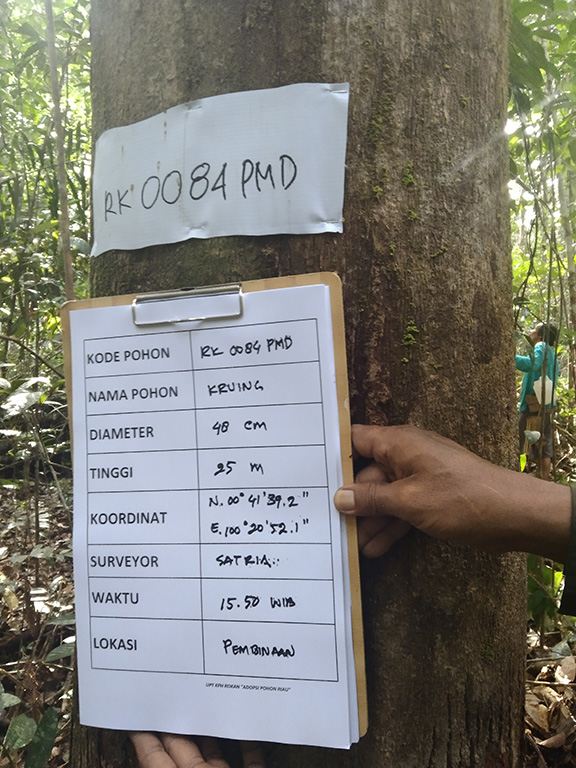 RK 0084 PMD
KODE POHON RK 0084 PMD
NAMA POHON KRUING
DIAMETER 48 cm
TINGGI 25 m
KOORDINAT N. 00° 41' 39.2"
E. 100° 20' 52.1"
SURVEYOR SATRIA
WAKTU 15.50 WIB
LOKASI PEMBINAAN
UPT KPH ROKAN "ADOPSI POHON RIAU"